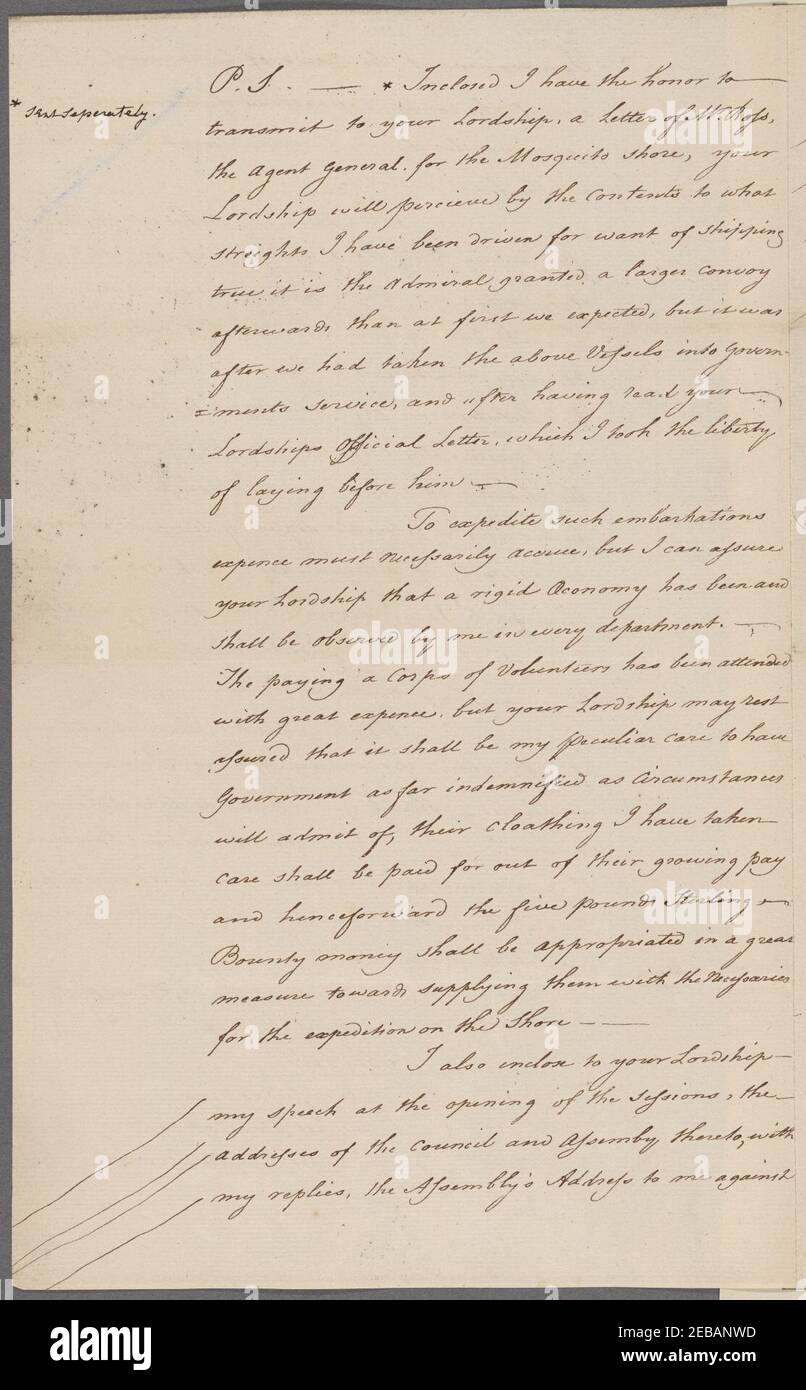 * Sent Seperately.
P.S. — * Inclosed I have the honor to
transmit to your Lordship, a Letter of Mr. Ross,
the Agent General. for the Mosquito shore, your
Lordship will percieve by the Contents to what
streights I have been driven for want of Shipping
true it is the Admiral granted a larger Convoy
afterwards than at first we expected, but it was
after we had taken the above Vessels into Govern-
=ments service, and after having read your
Lordships Official Letter, which I took the liberty
of laying before him —
To expedite such embarkations
expence must necessarily accrue, but I can assure
your Lordship that a rigid Œconomy has been and
shall be observed by me in every department. —
The paying a Corps of Volunteers has been attended
with great expence. but your Lordship may rest
assured that it shall be my peculiar care to have
Government as far indemnified as Circumstances
will admit of, their Cloathing I have taken
care shall be paid for out of their growing pay
and henceforward the five pounds Sterling
Bounty money shall be appropriated in a great
measure towards supplying them with the Necessaries
for the expedition on the Shore —
I also inclose to your Lordship
my speech at the opening of the Sessions, the
Addresses of the Council and Assemby thereto, with
my replies, the Assembly's Address to me against
alamy
Image ID: 2EBANWD
www.alamy.com